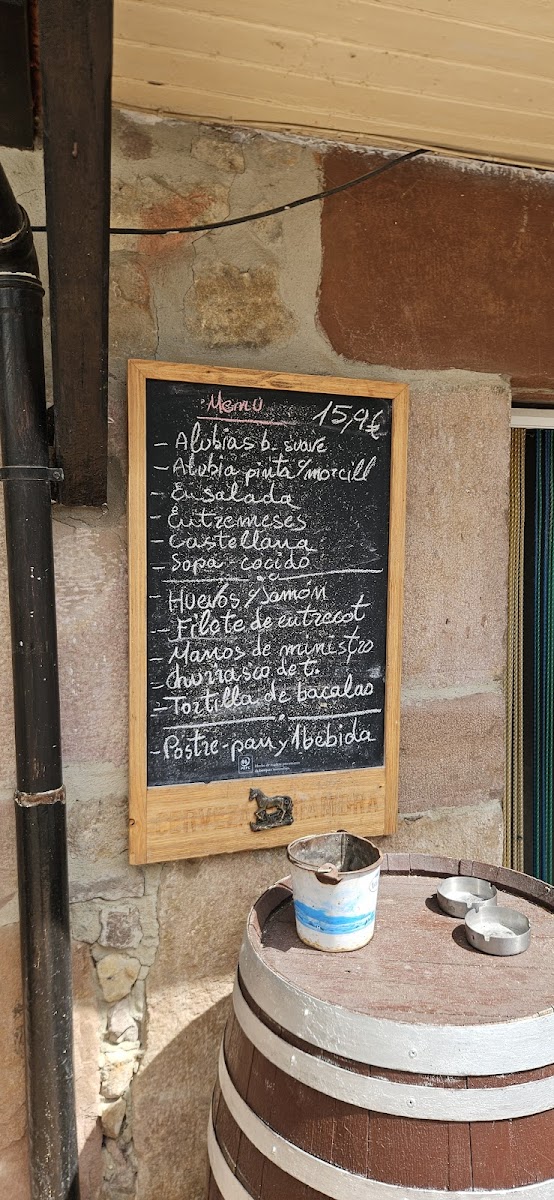 Menu 15,9€
- Alubias b. suave
- Alubia pinta c/morcill
- Ensalada
- Entremeses
- Castellana
- Sopa - cocido
- Huevos c/Jamón
- Filete de entrecot
- Manos de ministro
- Churrasco de t.
- Tortilla de bacalao
- Postre-pan y 1 bebida
CERVEZA